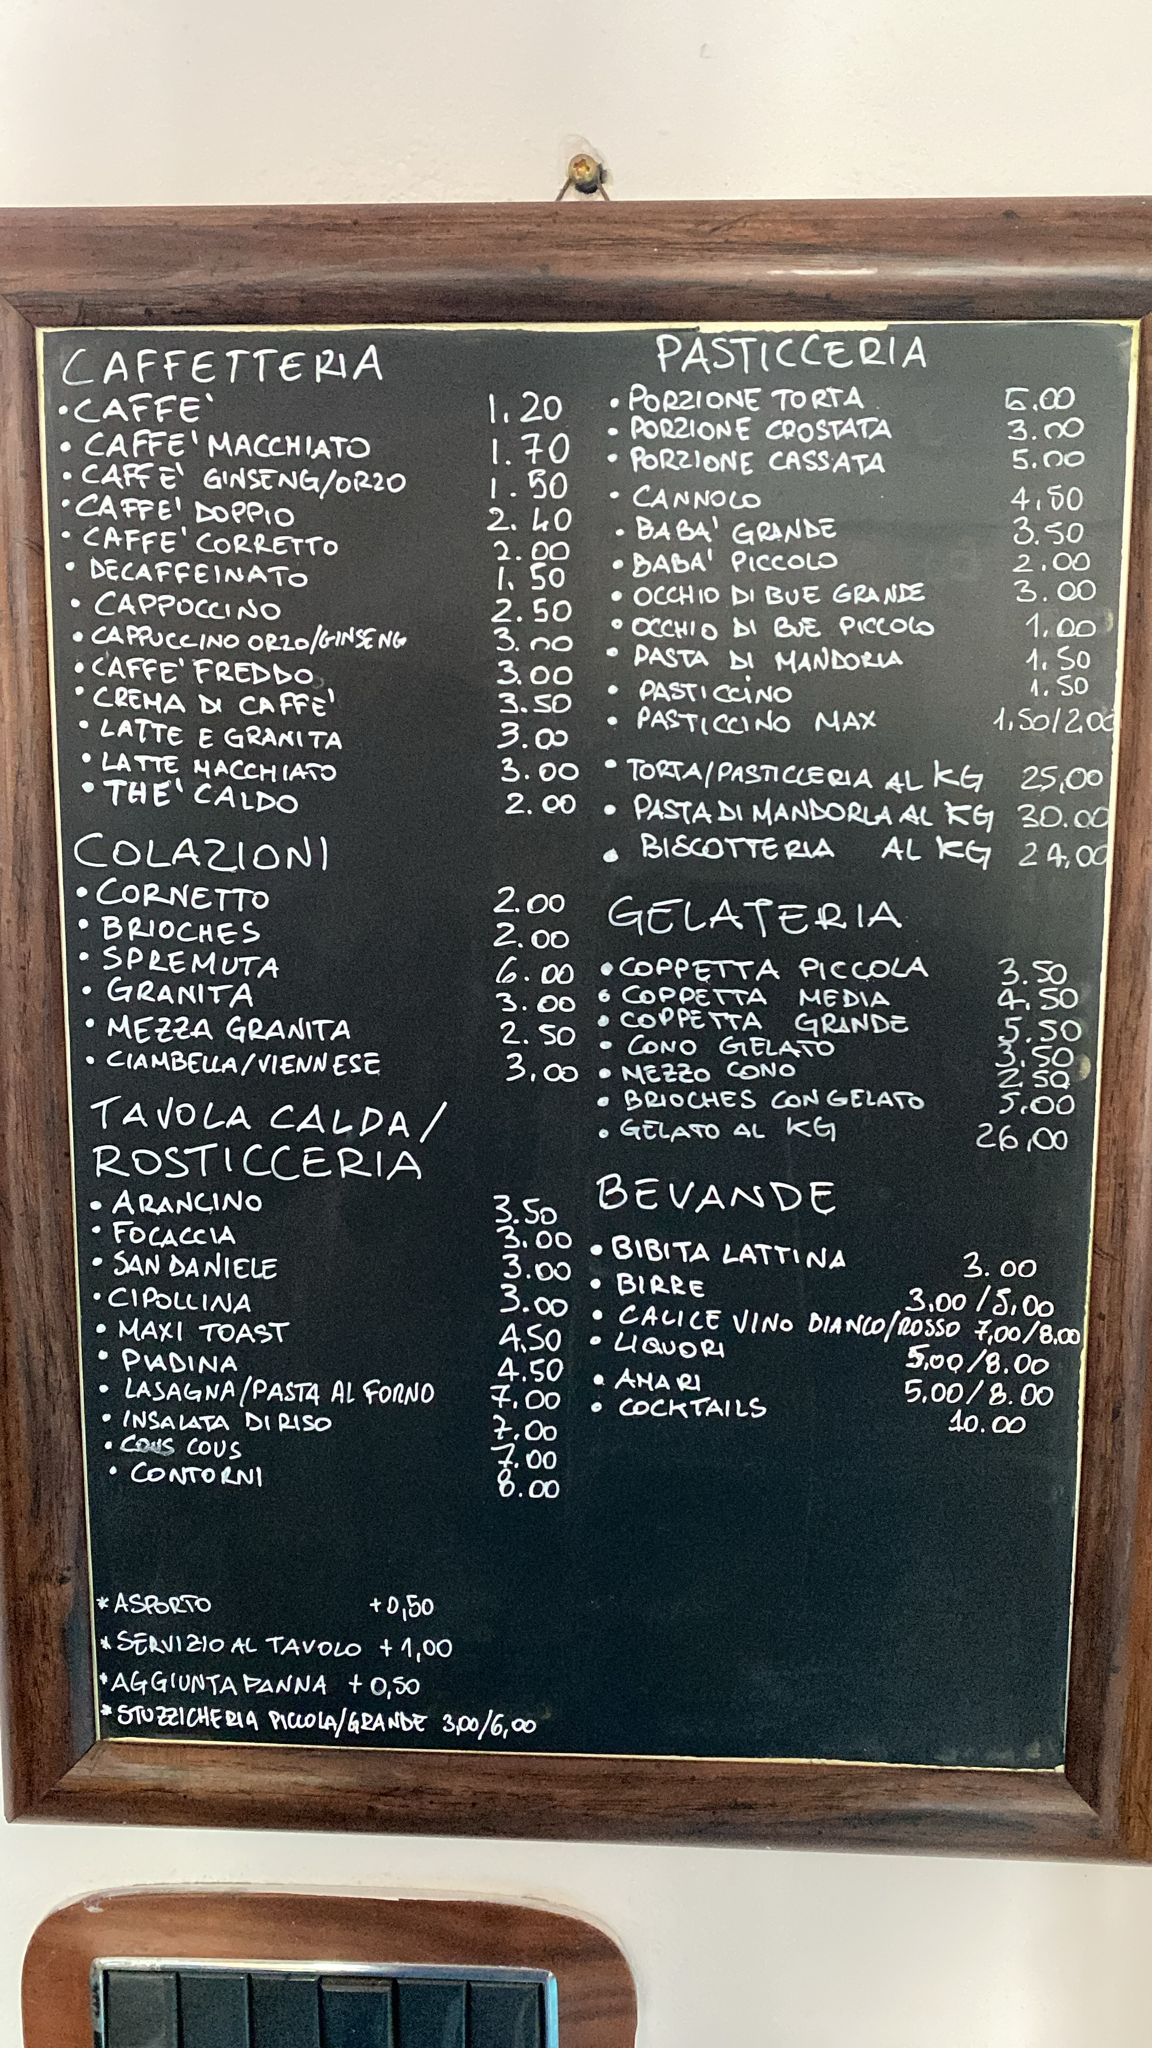 CAFFETTERIA
• CAFFE' 1.20
• CAFFE' MACCHIATO 1.70
• CAFFE' GINSENG/ORZO 1.50
• CAFFE' DOPPIO 2.40
• CAFFE' CORRETTO 2.00
• DECAFFEINATO 1.50
• CAPPOCCINO 2.50
• CAPPUCCINO ORZO/GINSENG 3.00
• CAFFE' FREDDO 3.00
• CREMA DI CAFFE' 3.50
• LATTE E GRANITA 3.00
• LATTE MACCHIATO 3.00
• THE' CALDO 2.00
COLAZIONI
• CORNETTO 2.00
• BRIOCHES 2.00
• SPREMUTA 6.00
• GRANITA 3.00
• MEZZA GRANITA 2.50
• CIAMBELLA/VIENNESE 3,00
TAVOLA CALDA/
ROSTICCERIA
• ARANCINO 3.50
• FOCACCIA 3.00
• SAN DANIELE 3.00
• CIPOLLINA 3.00
• MAXI TOAST 4.50
• PIADINA 4.50
• LASAGNA/PASTA AL FORNO 7.00
• INSALATA DI RISO 7.00
• COUS COUS 7.00
• CONTORNI 8.00
* ASPORTO +0,50
* SERVIZIO AL TAVOLO +1,00
* AGGIUNTA PANNA +0,50
* STUZZICHERIA PICCOLA/GRANDE 3,00/6,00
PASTICCERIA
• PORZIONE TORTA
• PORZIONE CROSTATA 3.00
• PORZIONE CASSATA 5.00
• CANNOLO 4,50
• BABA' GRANDE 3.50
• BABA' PICCOLO 2.00
• OCCHIO DI BUE GRANDE 3.00
• OCCHIO DI BUE PICCOLO 1.00
• PASTA DI MANDORLA 1.50
• PASTICCINO 1.50
• PASTICCINO MAX 1,50/2.00
• TORTA/PASTICCERIA AL KG 25,00
• PASTA DI MANDORLA AL KG 30.00
• BISCOTTERIA AL KG 24,00
GELATERIA
• COPPETTA PICCOLA 3.50
• COPPETTA MEDIA 4.50
• COPPETTA GRANDE 5.50
• CONO GELATO 3.50
• MEZZO CONO 2.50
• BRIOCHES CON GELATO 5.00
• GELATO AL KG 26,00
BEVANDE
• BIBITA LATTINA 3.00
• BIRRE 3,00/5,00
• CALICE VINO BIANCO/ROSSO 7,00/8.00
• LIQUORI 5,00/8.00
• AMARI 5,00/8.00
• COCKTAILS 10.00